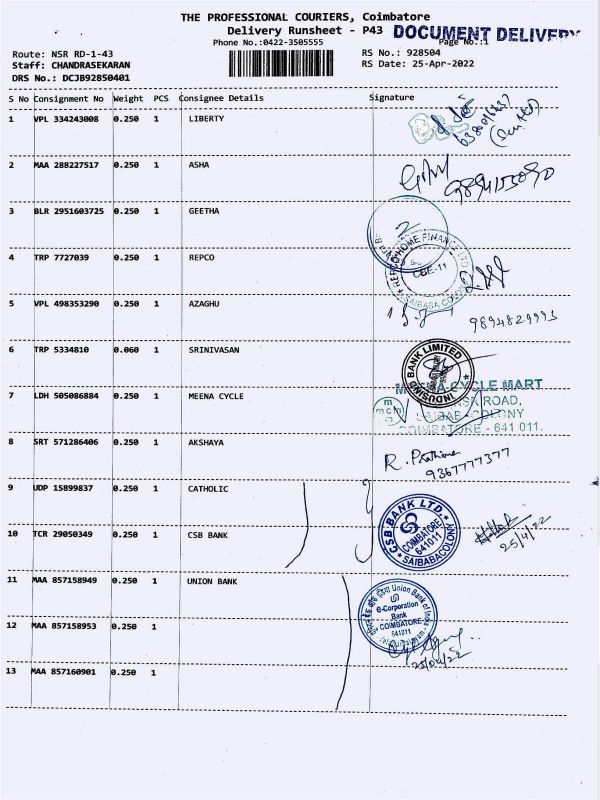 THE PROFESSIONAL COURIERS, Coimbatore
Delivery Runsheet - P43
DOCUMENT DELIVERY
Phone No.:0422-3505555
Page No.:1
Route: NSR RD-1-43
RS No.: 928504
Staff: CHANDRASEKARAN
RS Date: 25-Apr-2022
DRS No.: DCJB92850401
S No Consignment No Weight PCS Consignee Details Signature
1 VPL 334243008 0.250 1 LIBERTY
2 MAA 288227517 0.250 1 ASHA
3 BLR 2951603725 0.250 1 GEETHA
2
4 TRP 7727039 0.250 1 REPCO
REPCO HOME FINANCE LTD
CBE-11
SAIBABA COLONY
5 VPL 498353290 0.250 1 AZAGHU
9894829993
6 TRP 5334810 0.060 1 SRINIVASAN
INDUSIND BANK LIMITED
7 LDH 505086884 0.250 1 MEENA CYCLE
MEENA CYCLE MART
NSR ROAD,
SAIBABA COLONY
COIMBATORE - 641 011.
8 SRT 571286406 0.250 1 AKSHAYA
R. Prathima
9367777377
9 UDP 15899837 0.250 1 CATHOLIC
10 TCR 29050349 0.250 1 CSB BANK
CSB BANK LTD.
COIMBATORE
641011
SAIBABACOLONY
25/4/22
11 MAA 857158949 0.250 1 UNION BANK
Union Bank of India
e-Corporation
Bank
COIMBATORE
641011
12 MAA 857158953 0.250 1
25/04/22
13 MAA 857160901 0.250 1